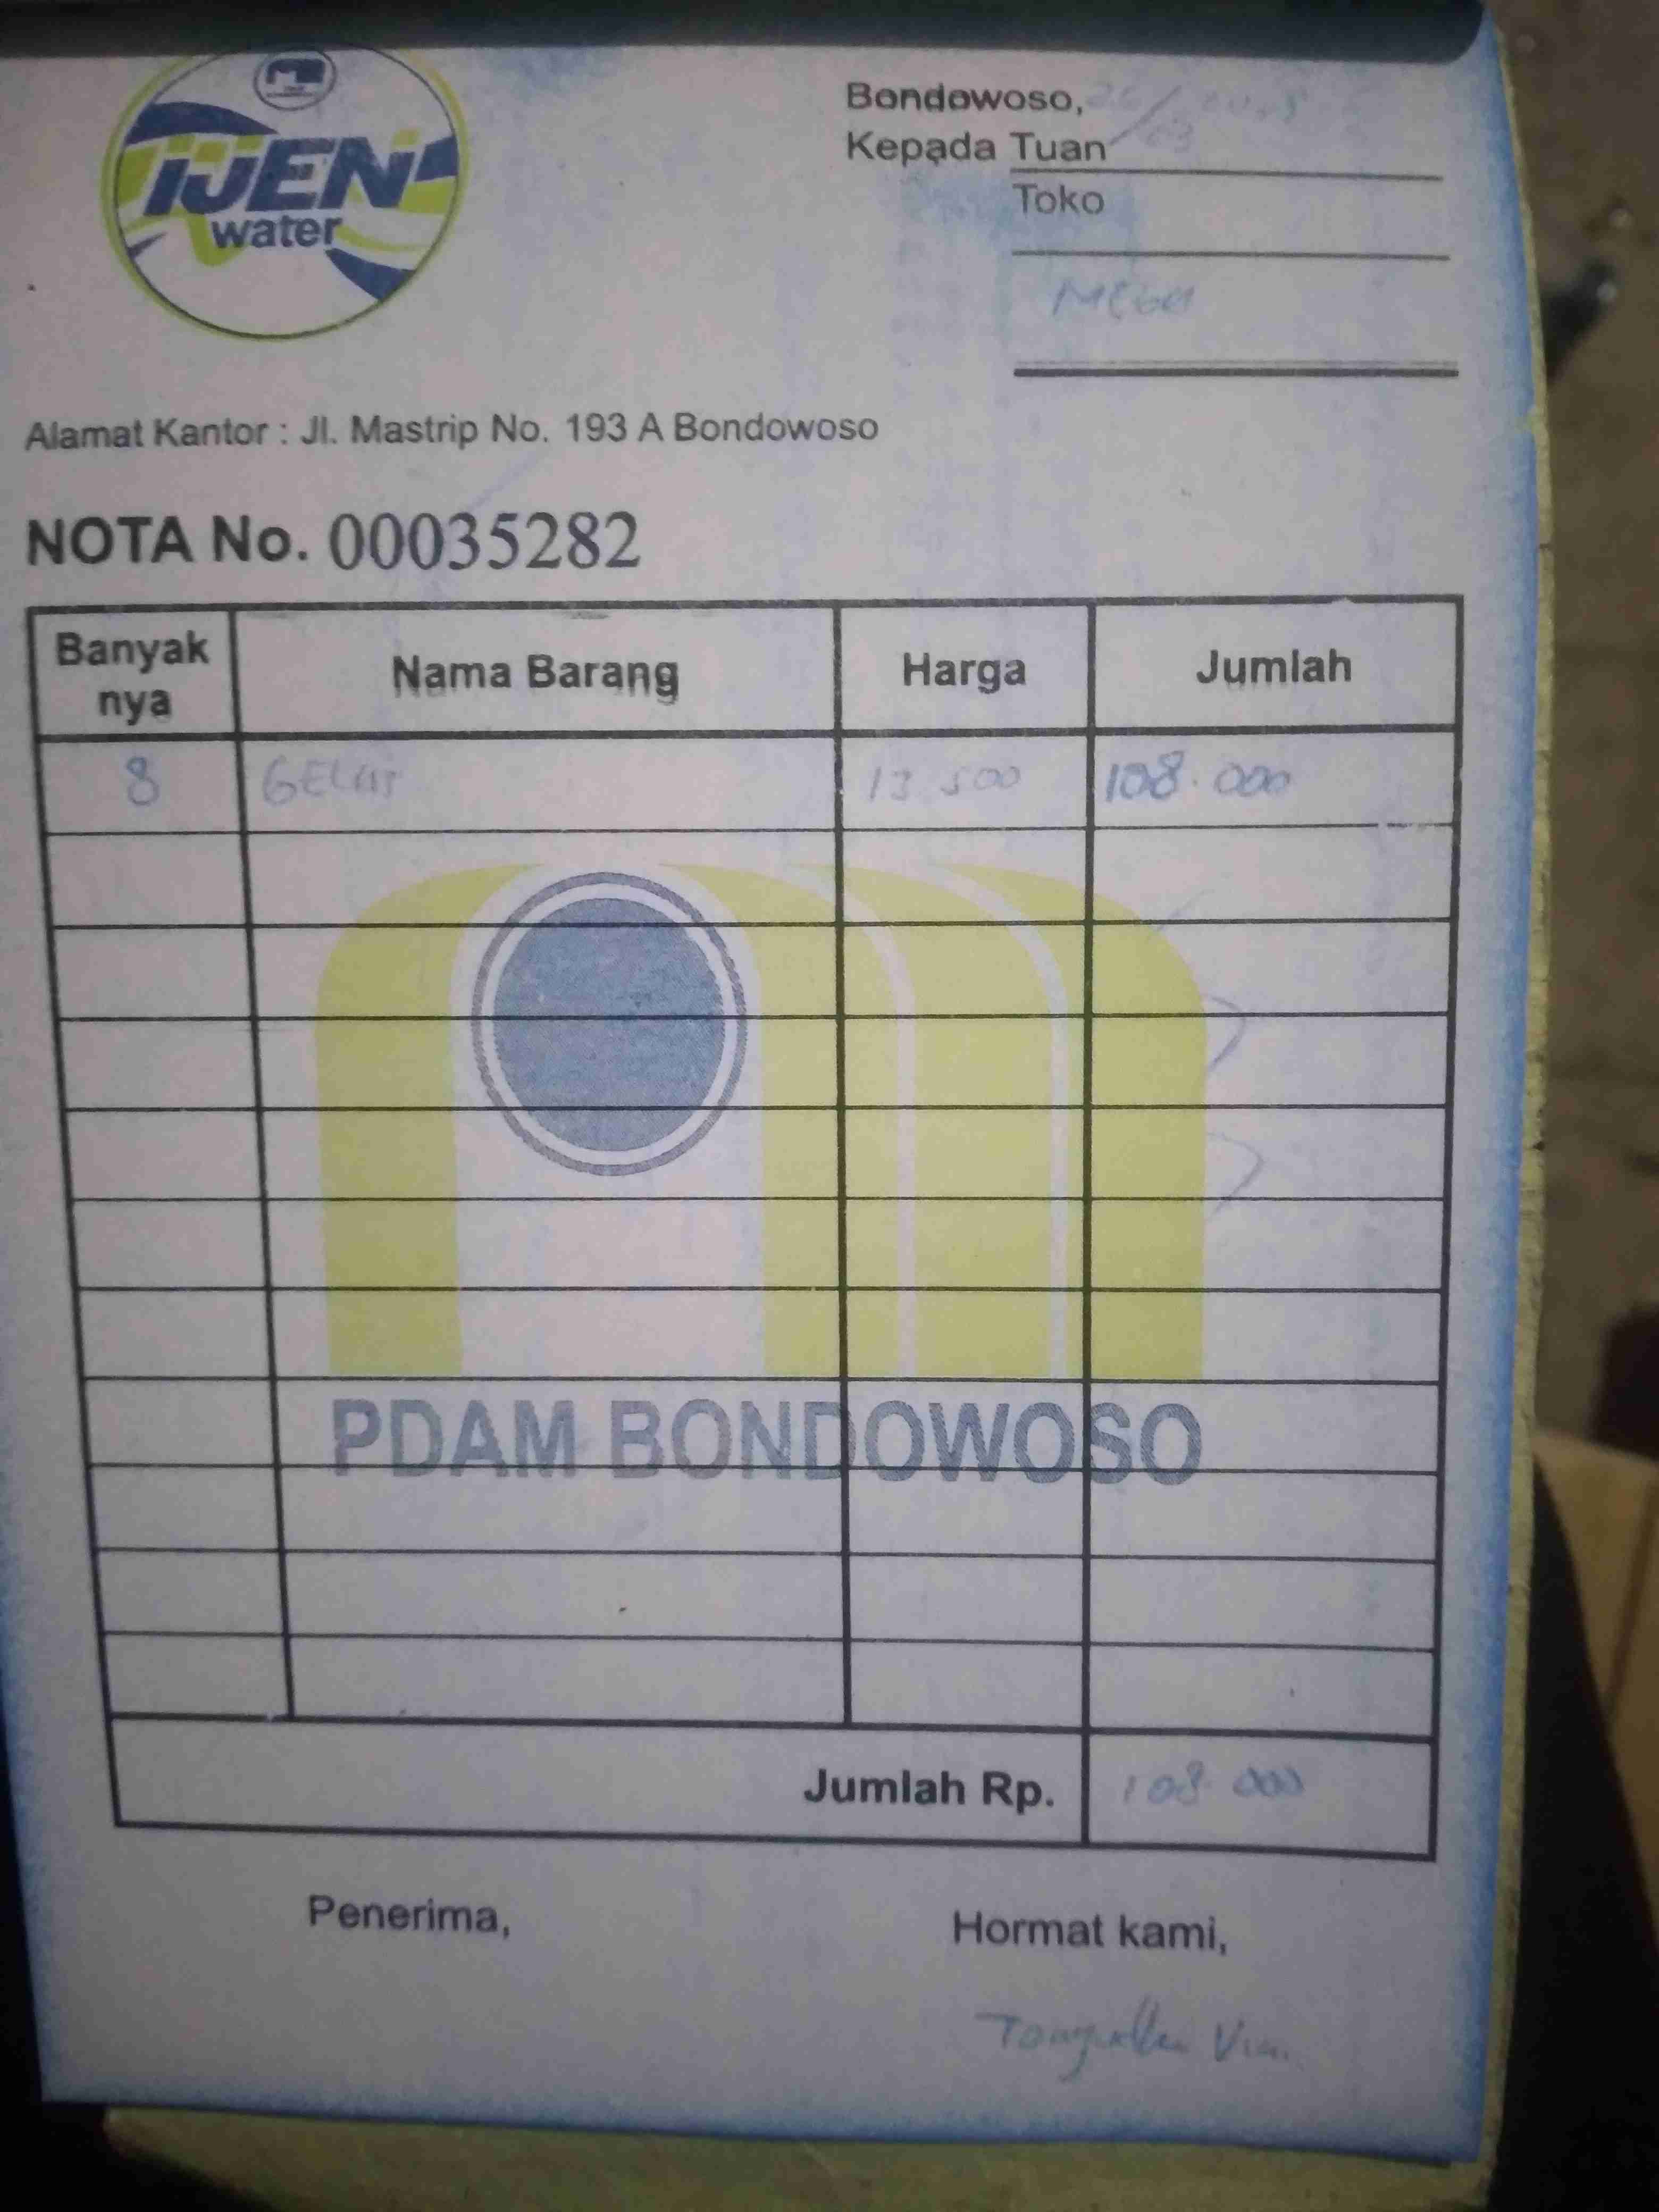 IJEN
water
Bondowoso, 26/03
Kepada Tuan
Toko
MEGA
Alamat Kantor : Jl. Mastrip No. 193 A Bondowoso
NOTA No. 00035282
Banyak nya Nama Barang Harga Jumlah
8 GELAS 13 500 108.000
PDAM BONDOWOSO
Jumlah Rp. 108.000
Penerima, Hormat kami,